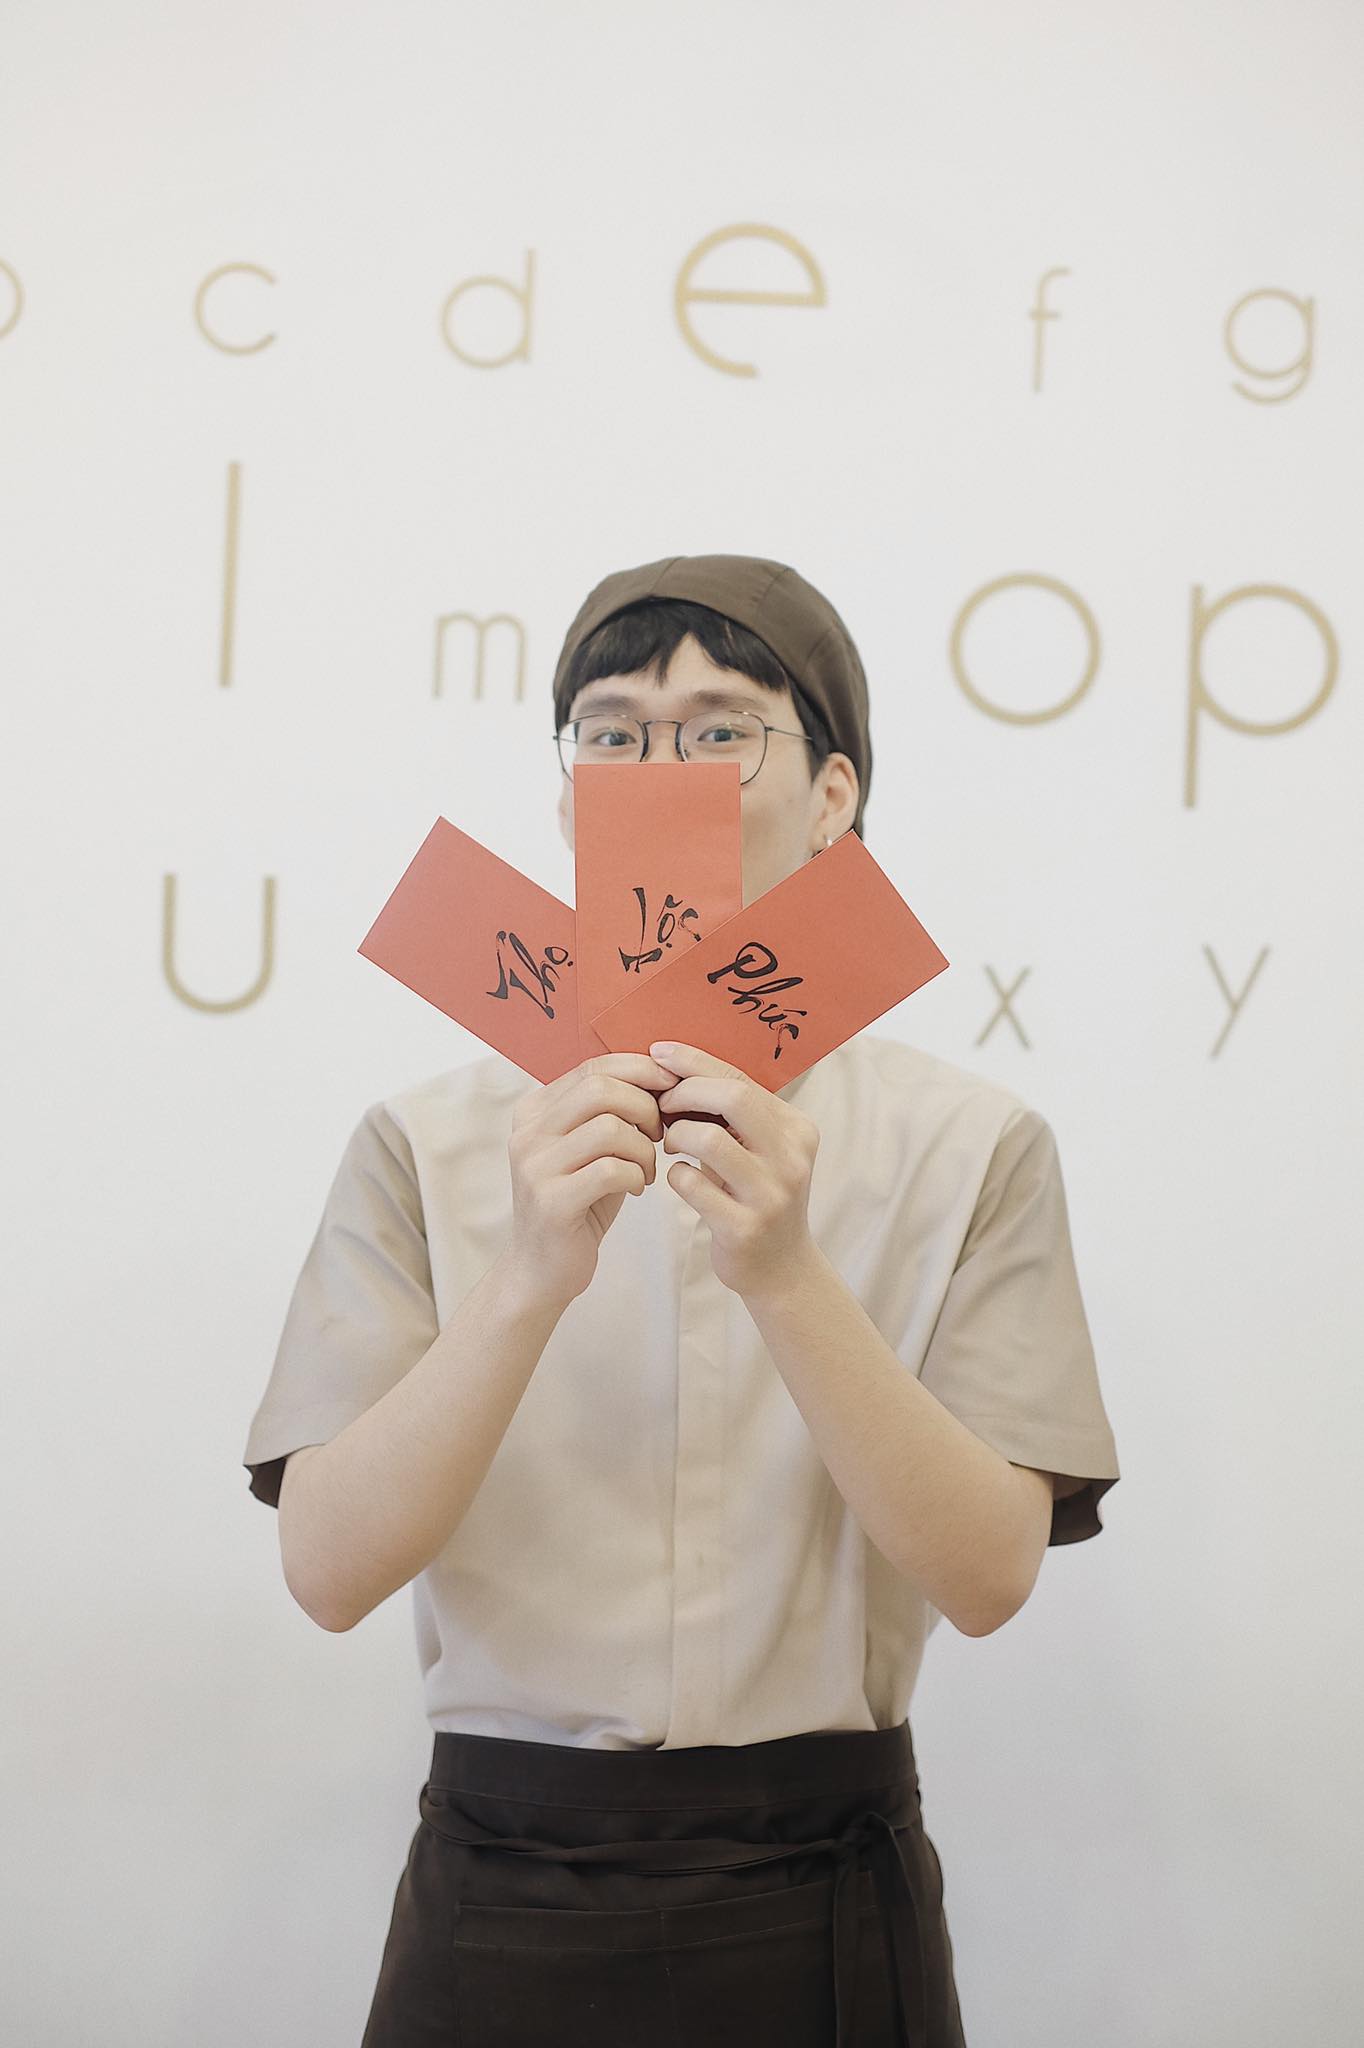 c d e f g
l m o p
u x y
Thọ
Lộc
Phúc